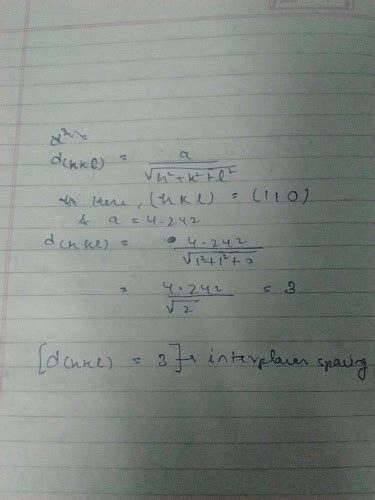 d(hkl) = a / √h²+k²+l²
Here, (hkl) = (110)
& a = 4.242
d(hkl) = 4.242 / √1²+1²+0
= 4.242 / √2 = 3
[d(hkl) = 3] → interplanar spacing